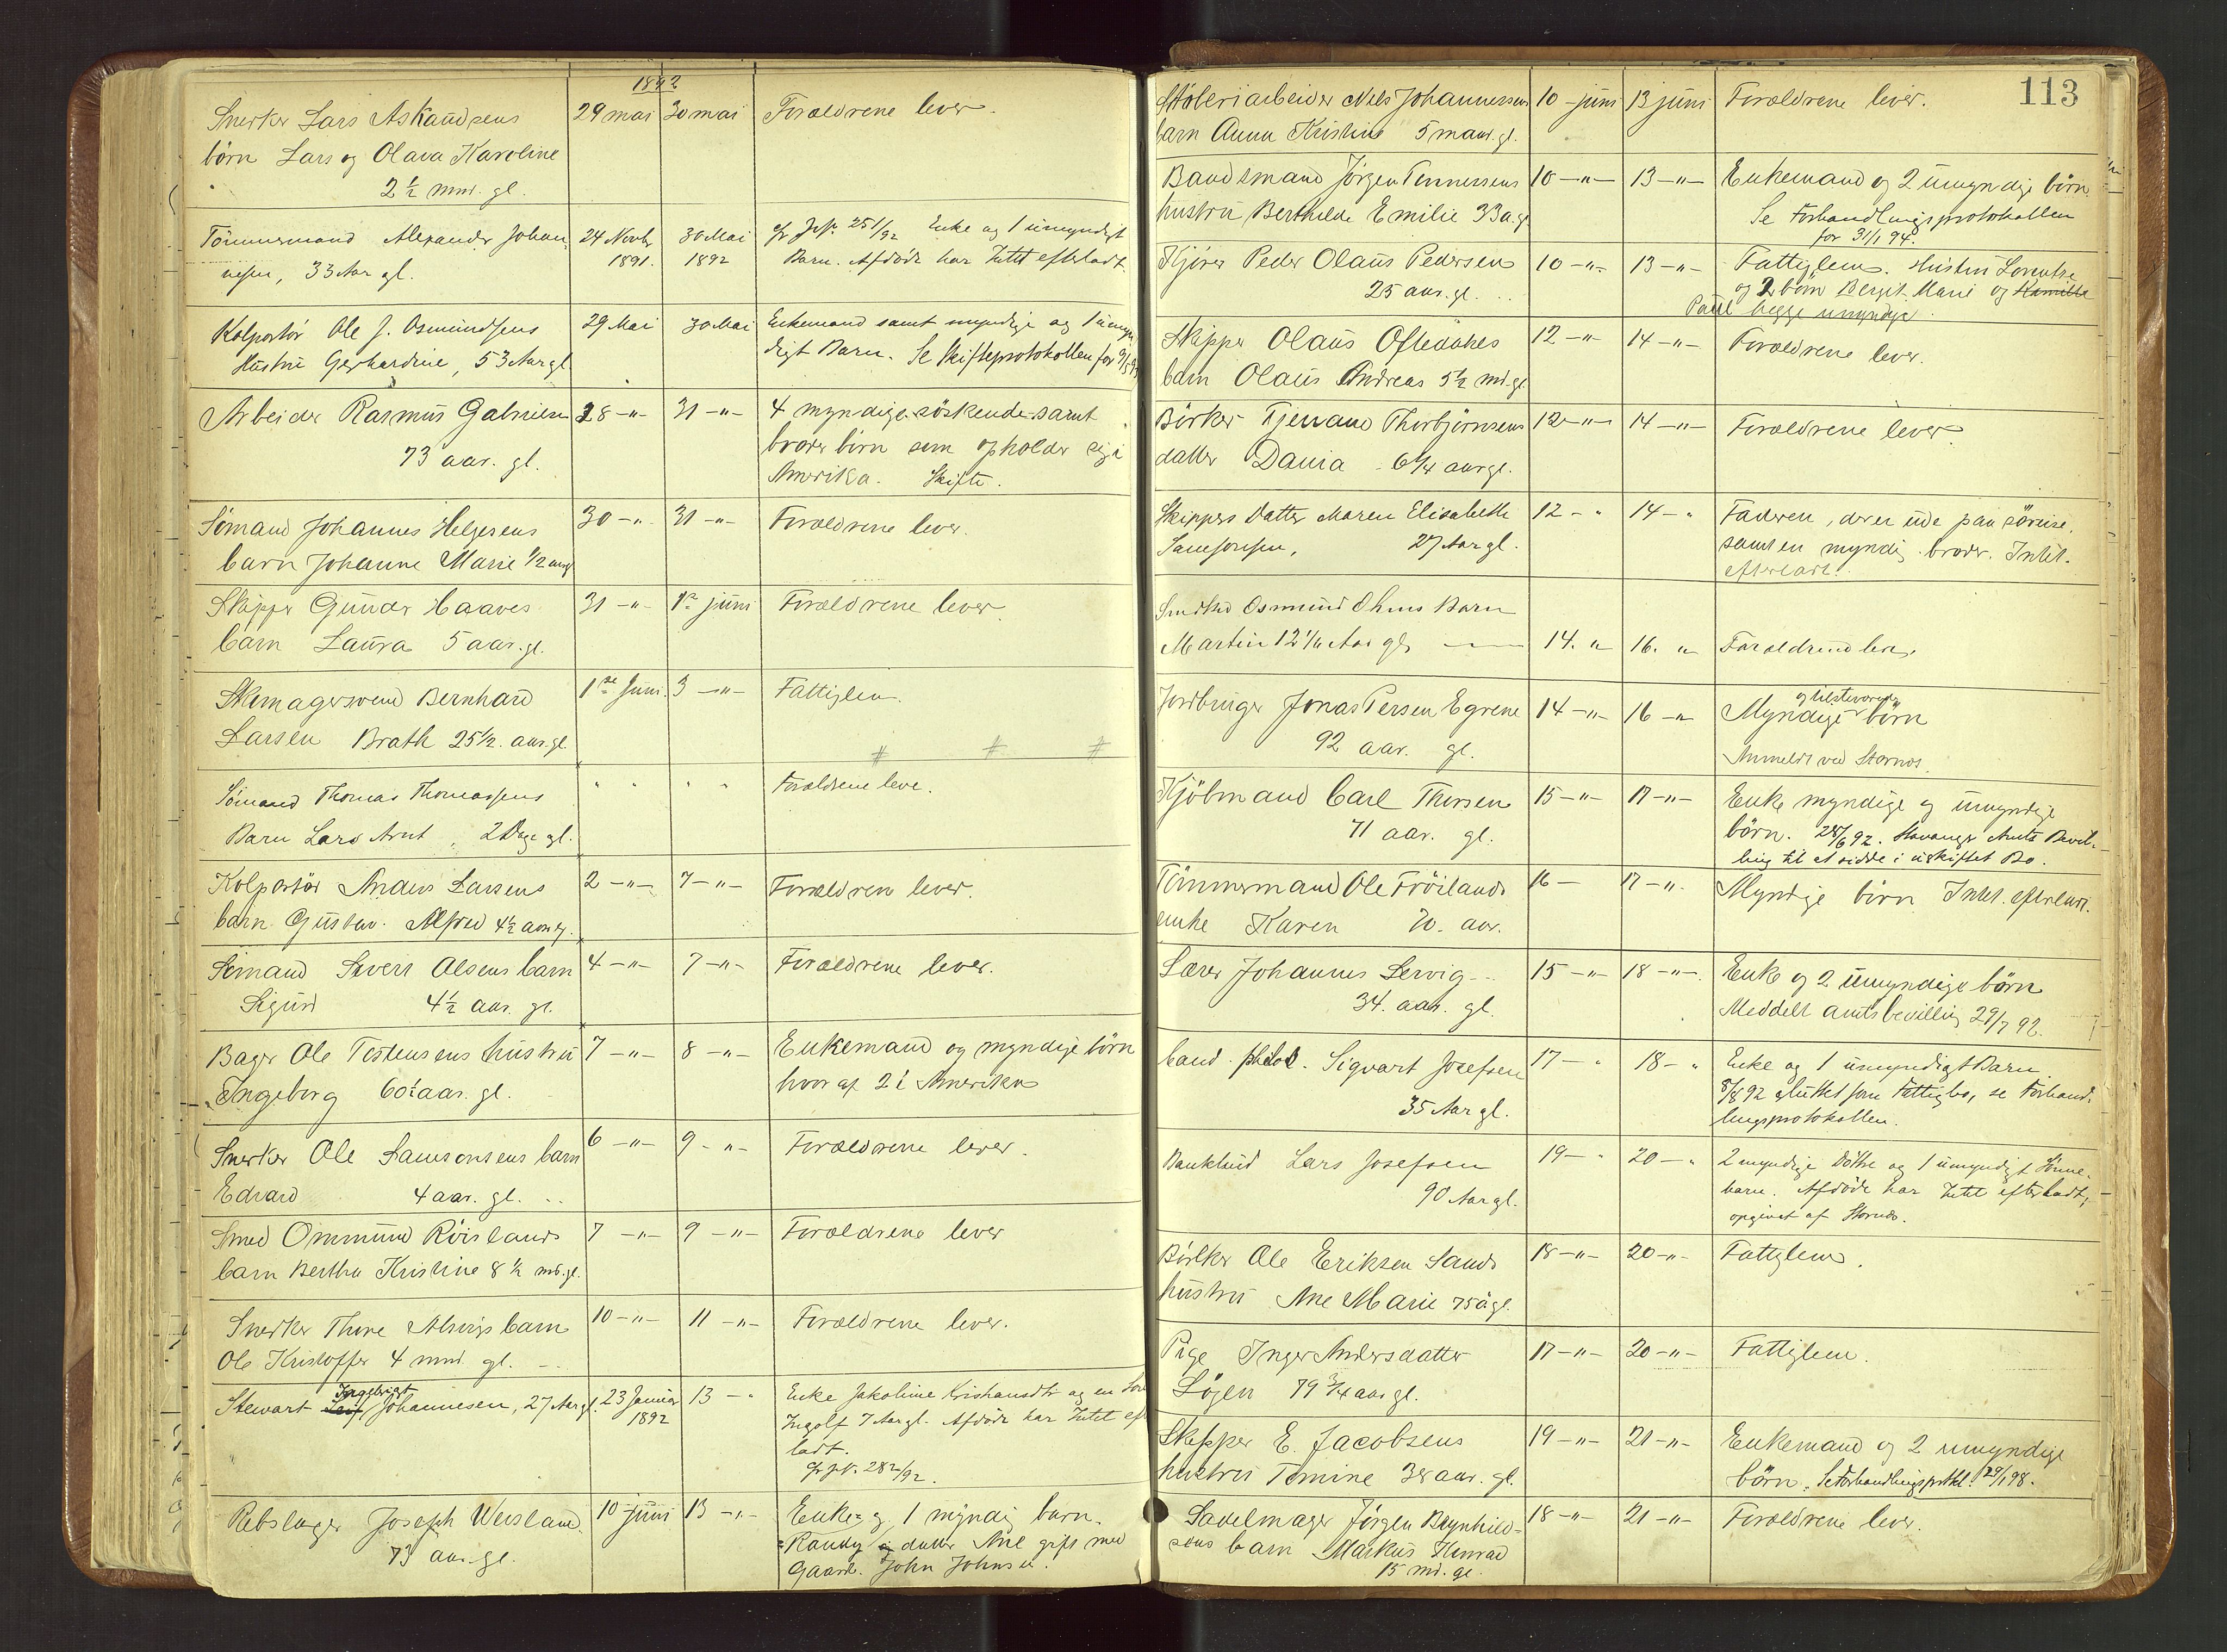 1892
Snerker Lars Askaudsens 29 mai 30 mai Forældrene lever.
børn Lars og Olava Karoline
2 1/2 mnd. gl.
Tømmermand Alexander Johan 24 Novbr 30 Mai cfr Jfr. 25 1/92 Enke og 1 umyndigt
nesen, 33 Aar gl. 1891. 1892 Barn. Afdøde har Intet efterladt.
Kolportør Ole J. Osmundsens 29 Mai 30 Mai Enkemand samt myndige og 1 umyn
Hustru Gerhardine, 53 Aar gl digt Barn. Se Skifteprotokollen for
Arbeider Rasmus Gabrielsen 28 -"- 31 -"- 4 myndige søskende samt
73 aar. gl. broderbørn som opholder sig i
Amerika. Skifte.
Sømand Johannes Helgesens 30 -"- 31 -"- Forældrene lever.
barn Johanne Marie 1/2 aar gl
Skipper Gunder Haaves 31 -"- 1ste juni Forældrene lever.
barn Laura 5 aar. gl.
Skomagersvend Bernhard 1ste Juni. 3 -"- Fattiglem.
Larsen Brath 25 1/2. aar. gl.
# # #
Sømand Thomas Thomassens " " " " Forældrene leve.
Barn Lars Arnt, 2 Dage gl.
Kolportør Anders Larsens 2 -"- 7 -"- Forældrene lever.
barn Gustav. Alfred 4 1/2 aar g.
Sømand Sivert Olsens barn 4 -"- 7 -"- Forældrene lever.
Sigurd 4 1/2 aar. gl.
Bager Ole Testensens hustru 7 -"- 8 -"- Enkemand og myndige børn
Ingeborg 60 1/2 aar. gl. hvoraf 2 i Amerika
Snerker Ole Samsonsens barn 6 -"- 9 -"- Forældrene lever.
Edvard 4 aar. gl.
Smed Ommund Røislands 7 -"- 9 -"- Forældrene lever
barn Bertha Kristine 8 1/2 md. gl.
Snerker Thore Alvigs barn 10 -"- 11 -"- Forældrene lever.
Ole Kristoffer 4 mnd. gl.
Ingebrigt
Stewart Johannesen, 27 Aar gl. 23 Januar 13 -"- Enke Jakobine Kristiansdtr og en Søn
1892 Ingolf 7 Aar gl. Afdøde har Intet ef
ladt.
cfr jfr. 28 2/92.
Rebslager Joseph Weisland 10 juni 13 -"- Enke og 1 myndig barn.
73 aar. gl. Randy og datter Ane gift med
Gaardb. John Johnsen.
113
Støberiarbeider Nils Johannessens 10 juni 13 juni Forældrene lever.
barn Anna Kristine 5 maan. gl.
Baadsmand Jørgen Tønnessens 10 -"- 13 -"- Enkemand og 2 umyndige børn
hustru Berthilde Emilie 33 a. g. Se Forhandlingsprotokollen
for 31/1 94.
Kjører Peder Olaus Pedersen 10 -"- 13 -"- Fattiglem. Hustru Lorentze
25 aar. gl. og 2 børn Bergit Marie og Kamilla
Paul begge umyndige.
Skipper Olaus Oftedahls 12 -"- 14 -"- Forældrene lever.
barn Olaus Andreas 5 1/2 md. gl
Bødker Tjerrand Thorbjørnsens 12 -"- 14 -"- Forældrene lever.
datter Dania 6 1/4 aar gl.
Skippers Datter Maren Elisabeth 12 - " 14 - " Faderen, der er ude paa søreise.
Samsonsen, 27 Aar gl. samt en myndig broder. Intet
efterladt.
Snedker Osmund Ohms Barn
Martin 12 1/2 Aar gl. 14. " 16. " Forældrene lev.
Jordbruger Jonas Persen Egrene 14 -"- 16 -"- Myndige og tilstedeværende børn
92 aar. gl. Anmeldt ved Stornos.
Kjøbmand Carl Thorsen 15 -"- 17 -"- Enke myndige og umyndige
71 aar. gl. børn. 28/6 92. Stavanger Amts Bevil-
ling til at sidde i uskiftet Bo.
Tømmermand Ole Frøilands 16 - 17 -"- Myndige børn Intet. efterladt.
enke Karen 70. aar.
Lærer Johannes Lervig 15 -"- 18 -"- Enke og 2 umyndige børn
34. aar. gl. Meddelt amtsbevilling 29/7 92.
Cand. philos. Sigvart Josefsen 17 - " 18 - " Enke og 1 umyndigt Barn.
35 Aar gl. 8/8 92 sluttet som Fattigbo, se Forhand-
lingsprotokollen.
Bankbud Lars Josefsen 19 - " 20 - " 2 myndige Døttre og 1 umyndigt Sønne-
90 Aar gl. barn. Afdøde har Intet efterladt,
opgivet af Stornos.
Bødker Ole Eriksen Sands 18 -"- 20 -"- Fattiglem.
hustru Ane Marie 75 a gl.
Pige Inger Andersdatter 17 -"- 20 -"- Fattiglem.
Løgen 79 3/4 aar gl.
Skipper E. Jacobsens 19 -"- 21 -"- Enkemand og 2 umyndige
hustru Tomine 38 aar. gl. børn. Se Forhandlingsprotkl. 29/1 98.
Sadelmager Jørgen Brynhild- 18 -"- 21 -"- Forældrene lever.
sens barn Markus Konrad
15 md. gl.